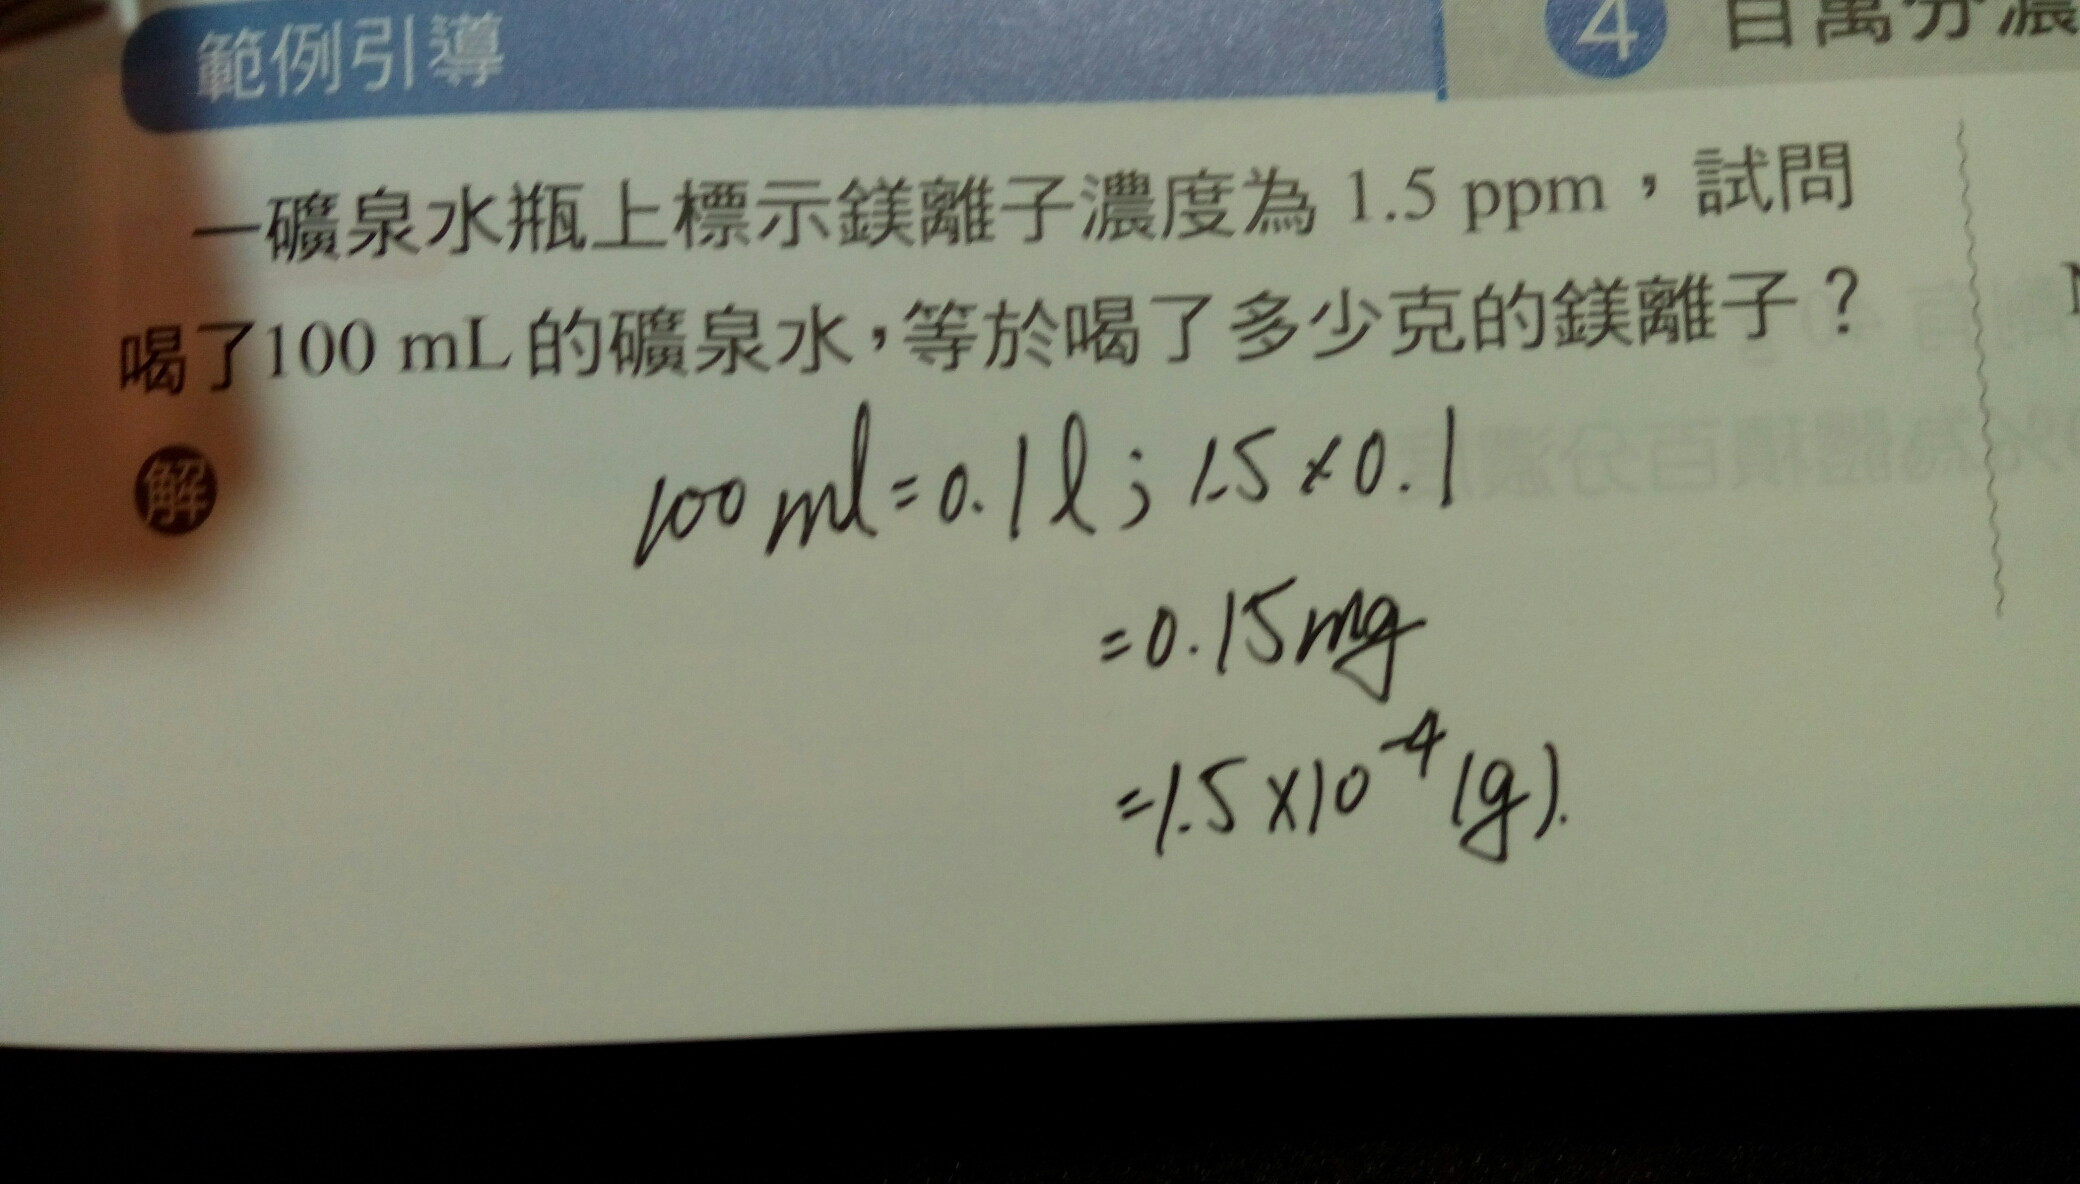 範例引導
4 百萬分濃
一礦泉水瓶上標示鎂離子濃度為 1.5 ppm，試問
喝了100 mL 的礦泉水，等於喝了多少克的鎂離子？
解
100 ml = 0.1 l ; 1.5 × 0.1
= 0.15 mg
= 1.5 × 10⁻⁴ (g).